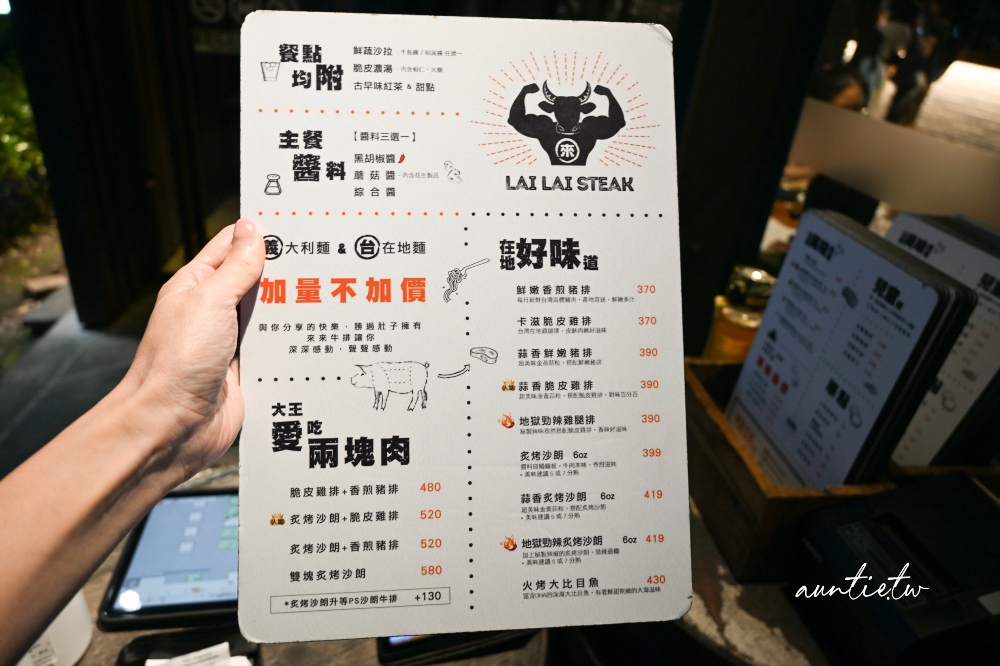 餐點
均附
鮮蔬沙拉
脆皮濃湯
古早味紅茶 & 甜點
主餐
醬料
【醬料三選一】
黑胡椒醬
蘑菇醬
綜合醬
義大利麵 & 台在地麵
加量不加價
與你分享的快樂，勝過肚子擁有
來來牛排讓你
深深感動，聲聲感動
大王
愛吃
兩塊肉
脆皮雞排+香煎豬排 480
炙烤沙朗+脆皮雞排 520
炙烤沙朗+香煎豬排 520
雙塊炙烤沙朗 580
*炙烤沙朗升等PS沙朗牛排 +130
來
LAI LAI STEAK
在地好味道
鮮嫩香煎豬排 370
卡滋脆皮雞排 370
蒜香鮮嫩豬排 390
蒜香脆皮雞排 390
地獄勁辣雞腿排 390
炙烤沙朗 6oz 399
•美味建議5或7分熟
蒜香炙烤沙朗 6oz 419
•美味建議5或7分熟
地獄勁辣炙烤沙朗 6oz 419
•美味建議5或7分熟
火烤大比目魚 430
auntie.tw